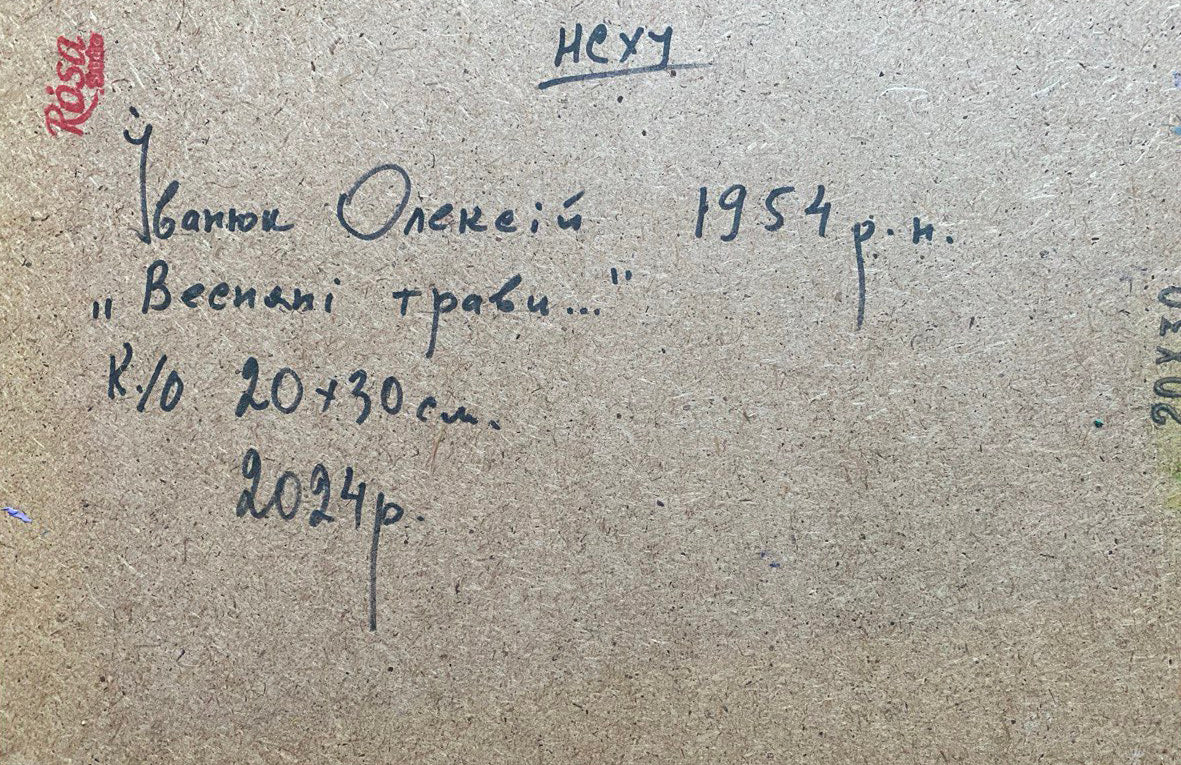 Rósa
Studio
НСХУ
Іванюк Олексій 1954 р.н.
„Весняні трави..."
К./о 20х30 см.
2024р.
20 х 30